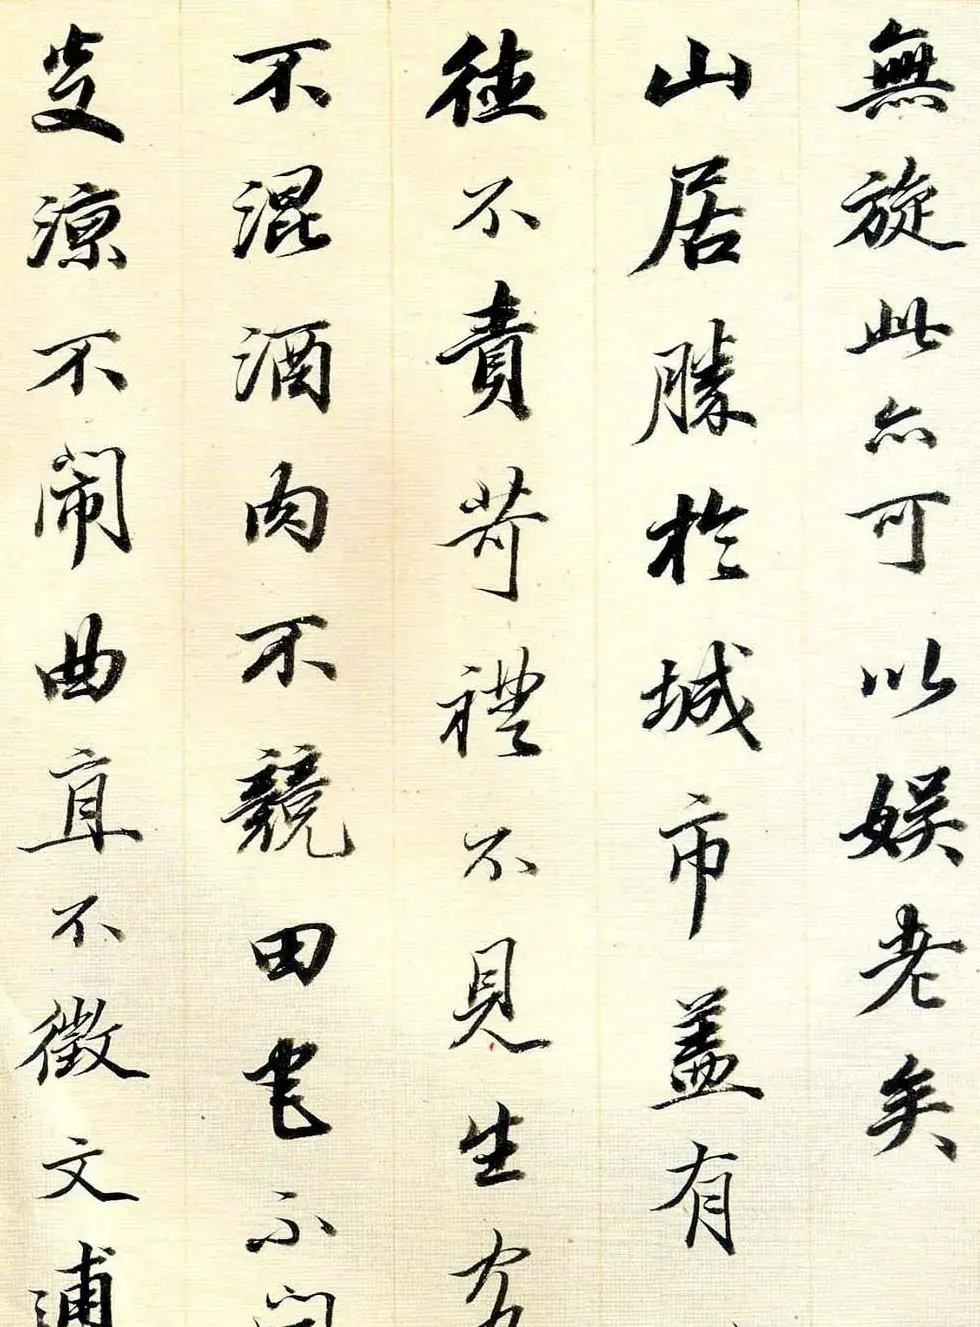 無旋此亦可以娛老矣
山居勝於城市蓋有
德不責苛禮不見生客
不混酒肉不競田宅不問
炎涼不鬧曲直不徵文逋